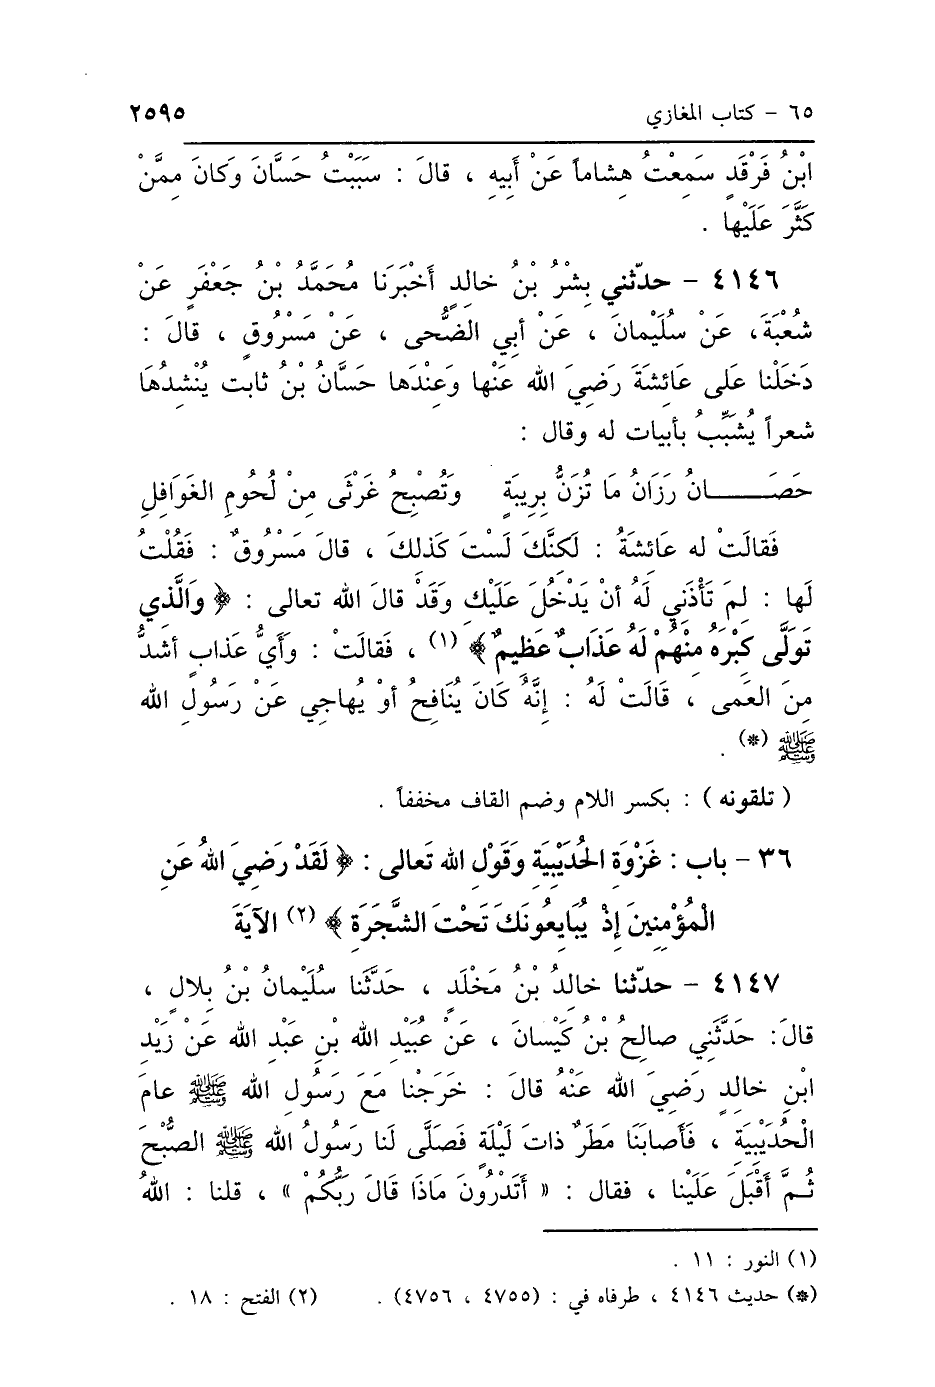 ٦٥ – كتاب المغازي ٢٥٩٥
ابْنُ فَرْقَدٍ سَمِعْتُ هِشاماً عَنْ أَبيهِ ، قالَ : سَبَبْتُ حَسَّانَ وَكانَ مِمَّنْ
كَثَّرَ عَلَيْها .
٤١٤٦ – حدّثني بِشْرُ بْنُ خالِدٍ أَخْبَرَنا مُحَمَّدُ بْنُ جَعْفَرٍ عَنْ
شُعْبَةَ، عَنْ سُلَيْمانَ ، عَنْ أبي الضُّحى ، عَنْ مَسْرُوقٍ ، قالَ :
دَخَلْنا عَلى عَائِشَةَ رَضِيَ الله عَنْها وَعِنْدَها حَسَّانُ بْنُ ثابت يُنْشِدُهَا
شعراً يُشَبِّبُ بأبيات له وقال :
حَصَـــــانُ رَزَانُ مَا تُزَنُّ بِرِيبَةٍ وَتُصْبِحُ غَرْثَى مِنْ لُحُومِ الغَوَافِلِ
فَقالَتْ له عَائِشَةُ : لَكنَّكَ لَسْتَ كَذلكَ ، قالَ مَسْرُوقٌ : فَقُلْتُ
لَها : لِمَ تَأْذَنِي لَهُ أنْ يَدْخُلَ عَلَيْكِ وَقَدْ قالَ الله تعالى : ﴿ وَالَّذِي
تَوَلَّى كِبْرَهُ مِنْهُمْ لَهُ عَذَابٌ عَظِيمٌ ﴾ (١) ، فَقالَتْ : وَأَيُّ عَذابٍ أشَدُّ
مِنَ العَمى ، قَالَتْ لَهُ : إِنَّهُ كَانَ يُنَافِحُ أوْ يُهاجِي عَنْ رَسُولِ الله
ﷺ (*) .
( تلقونه ) : بكسر اللام وضم القاف مخففاً .
٣٦ – باب : غَزْوَةِ الحُدَيْبِيَةِ وَقَوْلِ الله تَعالى : ﴿ لَقَدْ رَضِيَ اللهُ عَنِ
الْمُؤْمِنِينَ إِذْ يُبَايِعُونَكَ تَحْتَ الشَّجَرَةِ ﴾ (٢) الآيَةَ
٤١٤٧ – حدّثنا خالِدُ بْنُ مَخْلَدٍ ، حَدَّثَنا سُلَيْمانُ بْنُ بِلالٍ ،
قالَ: حَدَّثَنِي صالِحُ بْنُ كَيْسانَ ، عَنْ عُبَيْدِ الله بْنِ عَبْدِ الله عَنْ زَيْدِ
ابْنِ خالِدٍ رَضِيَ الله عَنْهُ قالَ : خَرَجْنا مَعَ رَسُولِ الله ﷺ عامَ
الْحُدَيْبِيَةِ ، فَأَصابَنَا مَطَرٌ ذاتَ لَيْلَةٍ فَصَلَّى لَنا رَسُولُ الله ﷺ الصُّبْحَ
ثُمَّ أَقْبَلَ عَلَيْنا ، فقال : « أَتَدْرُونَ مَاذَا قَالَ رَبُّكُمْ » ، قلنا : اللهُ
(١) النور : ١١ .
(*) حديث ٤١٤٦ ، طرفاه في : (٤٧٥٥ ، ٤٧٥٦) . (٢) الفتح : ١٨ .